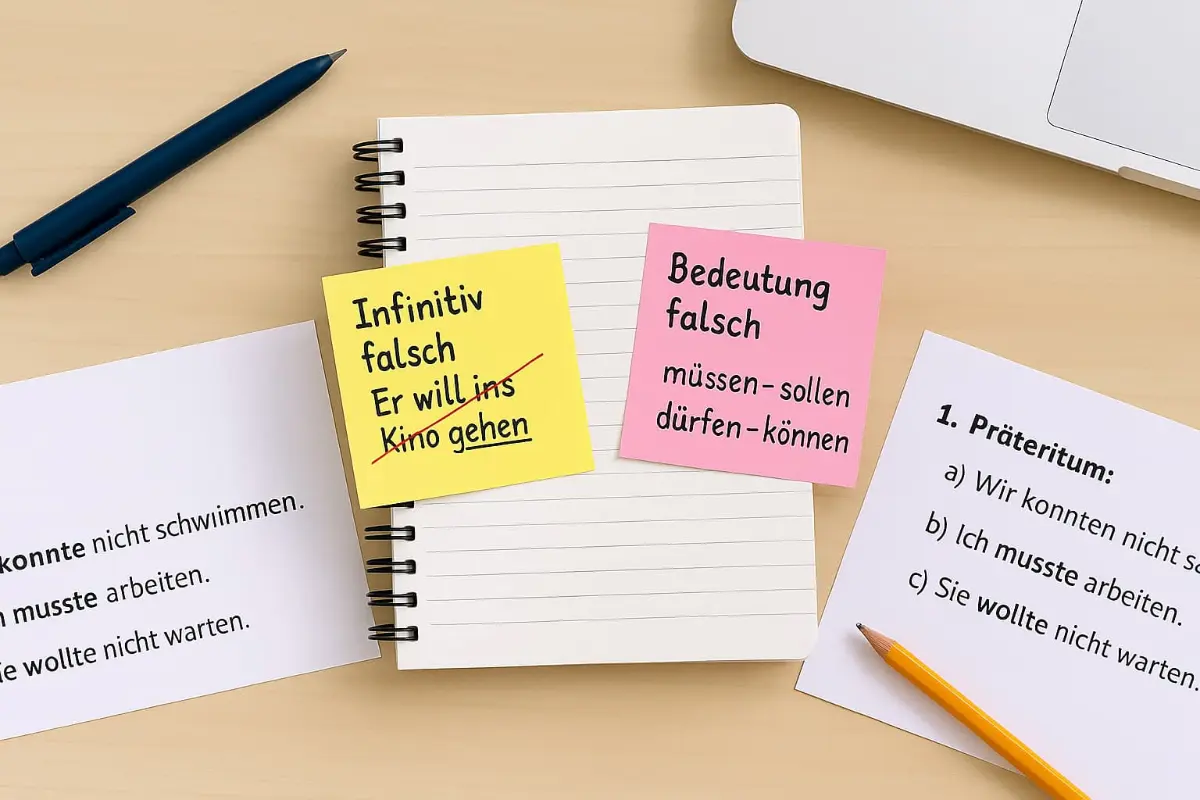 Infinitiv
falsch
Er will ins
Kino gehen
Bedeutung
falsch
müssen – sollen
dürfen – können
konnte nicht schwimmen.
musste arbeiten.
wollte nicht warten.
1. Präteritum:
a) Wir konnten nicht
b) Ich musste arbeiten.
c) Sie wollte nicht warten.